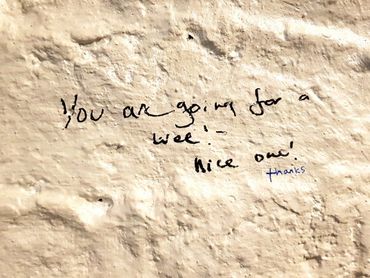 You are going for a
wee!-
Nice one!
thanks